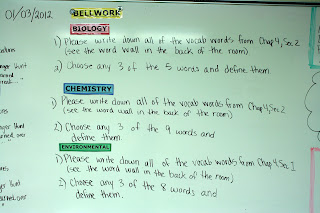 01/03/2012
BELLWORK
BIOLOGY
1) Please write down all of the vocab words from Chap 4, Sec 2
(see the word wall in the back of the room)
2) Choose any 3 of the 5 words and define them
CHEMISTRY
1) Please write down all of the vocab words from Chap 4 Sec 2
(see the word wall in the back of the room)
2) Choose any 3 of the 9 words and
define them.
ENVIRONMENTAL
1) Please write down all of the vocab words from Chap 4 Sec 1
(see the word wall in the back of the room)
2) Choose any 3 of the 8 words and
define them.